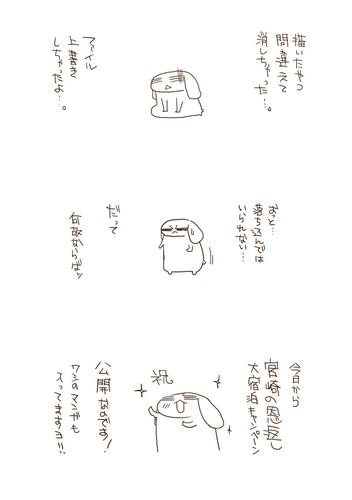 描いたやつ
間違えて
消しちゃった…。
ファイル
上書き
しちゃったよ…。
おっと…
落ち込んでは
いられない…
だって
何故ならばッ
今日から
宮崎の恩返し
大宿泊キャンペーン
祝
公開なのです！
ワシのマンガも
入ってますヨ!!